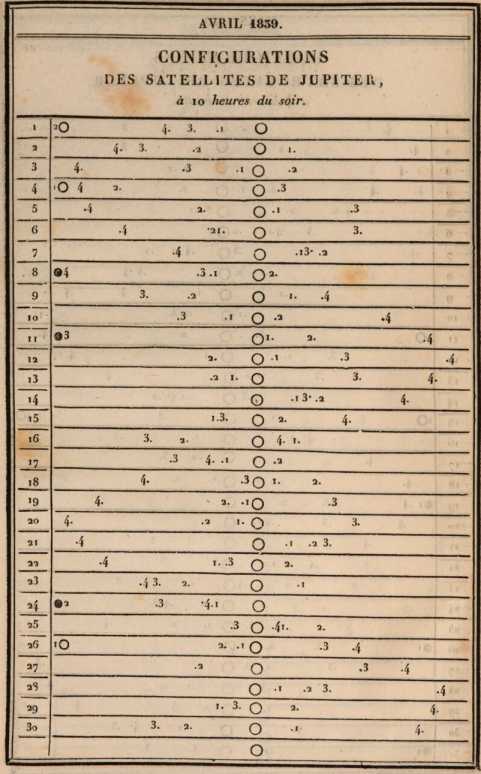 AVRIL 1839.
CONFIGURATIONS
DES SATELLITES DE JUPITER,
à 10 heures du soir.
1 2○ 4. 3. .1 ○
2 4. 3. .2 ○ 1.
3 4. .3 .1 ○ .2
4 1○ 4 2. ○ .3
5 .4 2. ○ .1 .3
6 .4 .21. ○ 3.
7 .4 ○ .13. .2
8 ●4 .3 .1 ○ 2.
9 3. .2 ○ 1. .4
10 .3 .1 ○ .2 .4
11 ●3 ○ 1. 2. .4
12 2. ○ .1 .3 .4
13 .2 1. ○ 3. 4.
14 ○ .1 3. .2 4.
15 1.3. ○ 2. 4.
16 3. 2. ○ 4. 1.
17 .3 4. .1 ○ .2
18 4. .3 ○ 1. 2.
19 4. 2. .1 ○ .3
20 4. .2 1. ○ 3.
21 .4 ○ .1 .2 3.
22 .4 1. .3 ○ 2.
23 .4 3. 2. ○ .1
24 ●2 .3 .4.1 ○
25 .3 ○ .41. 2.
26 1○ 2. .1 ○ .3 .4
27 .2 ○ .3 .4
28 ○ .1 .2 3. .4
29 1. 3. ○ 2. 4.
30 3. 2. ○ .1 4.
○